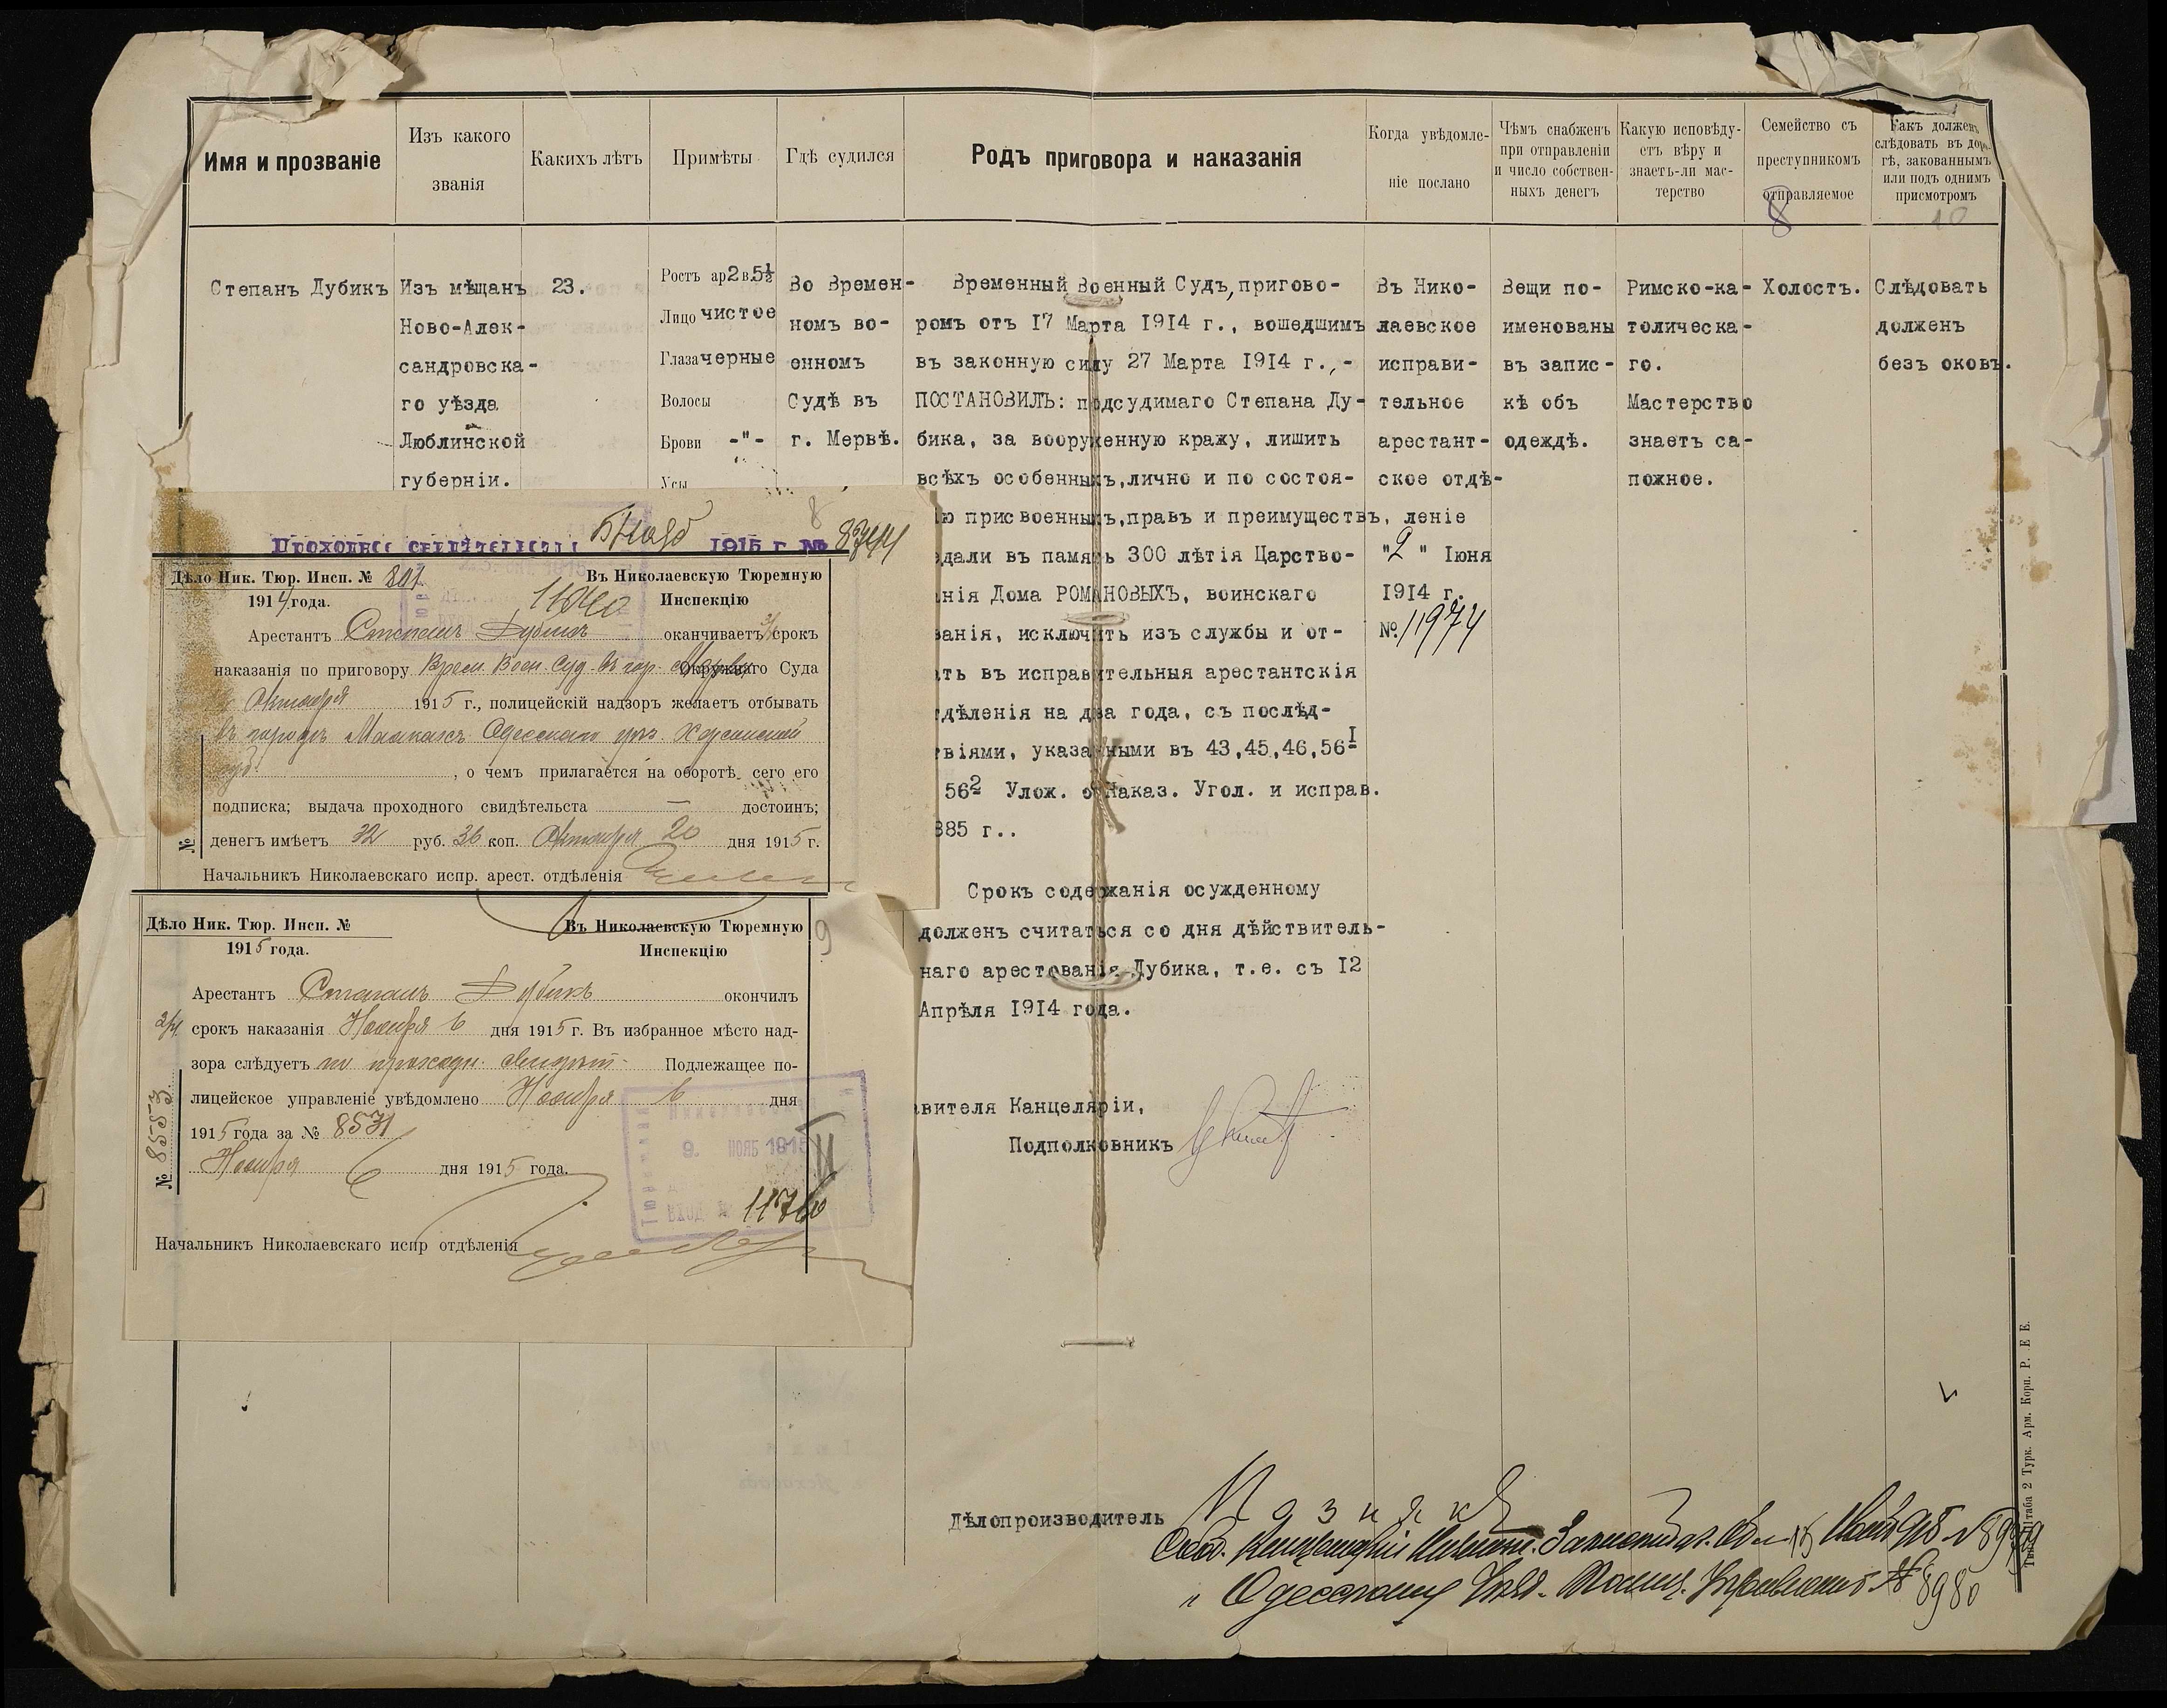 Имя и прозваніе
Изъ какого
званія
Какихъ лѣтъ
Примѣты
Гдѣ судился
Родъ приговора и наказанія
Когда увѣдомле-
ніе послано
Чѣмъ снабженъ
при отправленіи
и число собствен-
ныхъ денегъ
Какую исповѣду-
етъ вѣру и
знаетъ-ли мас-
терство
Семейство съ
преступникомъ
отправляемое
8
Какъ долженъ
слѣдовать въ доро-
гѣ, закованнымъ
или подъ однимъ
присмотромъ
10
Степанъ Дубикъ
Изъ мѣщанъ
Ново-Алек-
сандровска-
го уѣзда
Люблинской
губерніи.
23.
Ростъ ар 2 в. 5½
Лицо чистое
Глаза черные
Волосы
Брови -"-
Усы
Во Времен-
номъ во-
енномъ
Судѣ въ
г. Мервѣ.
Временный Военный Судъ, пригово-
ромъ отъ 17 Марта 1914 г., вошедшимъ
въ законную силу 27 Марта 1914 г., -
ПОСТАНОВИЛЪ: подсудимаго Степана Ду-
бика, за вооруженную кражу, лишить
всѣхъ особенныхъ, лично и по состоя-
ю присвоенныхъ, правъ и преимуществъ,
дали въ память 300 лѣтія Царство-
нія Дома РОМАНОВЫХЪ, воинскаго
ванія, исключить изъ службы и от-
ть въ исправительныя арестантскія
дѣленія на два года, съ послѣд-
твіями, указанными въ 43,45,46,56¹
56² Улож. о Наказ. Угол. и исправ.
885 г..
Срокъ содержанія осужденному
долженъ считаться со дня дѣйствитель-
наго арестованія Дубика, т.е. съ 12
Апрѣля 1914 года.
вителя Канцеляріи,
Подполковникъ
Въ Нико-
лаевское
исправи-
тельное
арестант-
ское отдѣ-
леніе
"2" Іюня
1914 г.
№ 11974
Вещи по-
именованы
въ запис-
кѣ объ
одеждѣ.
Римско-ка-
толическа-
го.
Мастерство
знаетъ са-
пожное.
Холостъ.
Слѣдовать
долженъ
безъ оковъ.
8
Проходное свидѣтельство 6 Нояб 1915 г. № 8344
Дѣло Ник. Тюр. Инсп. № 801
1914 года.
Въ Николаевскую Тюремную
Инспекцію
Арестантъ Степанъ Дубикъ оканчиваетъ срокъ
наказанія по приговору Врем. Воен. Суд. въ гор. Мервѣ Окружнаго Суда
Октября 1915 г., полицейскій надзоръ желаетъ отбывать
въ городѣ Маякахъ Одесскаго уѣз. Херсонской
губ. , о чемъ прилагается на оборотѣ сего его
подписка; выдача проходного свидѣтельста — достоинъ;
денегъ имѣетъ 32 руб. 36 коп. Октября 20 дня 1915 г.
№
Начальникъ Николаевскаго испр. арест. отдѣленія
9
Дѣло Ник. Тюр. Инсп. №
1915 года.
Въ Николаевскую Тюремную
Инспекцію
Арестантъ Степанъ Дубикъ окончилъ
срокъ наказанія Ноября 6 дня 1915 г. Въ избранное мѣсто над-
зора слѣдуетъ по проходн. свидѣт. Подлежащее по-
лицейское управленіе увѣдомлено Ноября 6 дня
1915 года за № 8531
Ноября 6 дня 1915 года.
№ 8553.
9. НОЯБ 1915
ВХОД. № 11760
Начальникъ Николаевскаго испр отдѣленія
Дѣлопроизводитель
Познякъ
Одесскому Уѣзд. Полиц. Управленію № 8980
Тип. Штаба 2 Турк. Арм. Корп. Р. Е. Е.